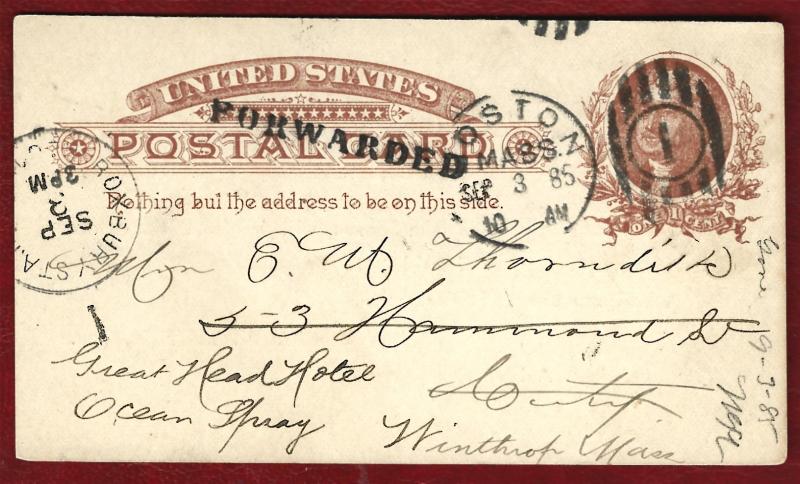 UNITED STATES
POSTAL CARD
Nothing but the address to be on this side.
FORWARDED
BOSTON
MASS.
SEP 3 85
10 AM
1
ONE CENT
ROXBURY STA.
SEP
3 PM
E. W. Thorndike
53 Hammond St
City
Great Head Hotel
Ocean Spray
Winthrop Mass
9-3-85